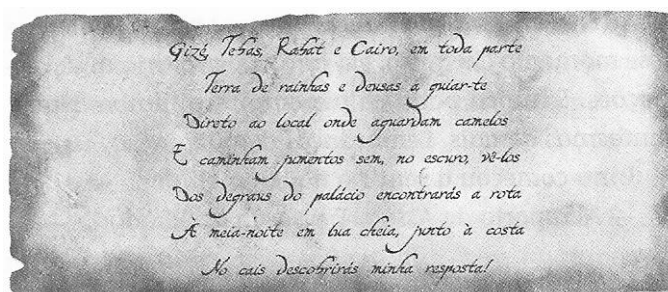 Gizé, Tebas, Rabat e Cairo, em toda parte
Terra de rainhas e deusas a guiar-te
Direto ao local onde aguardam camelos
E caminham jumentos sem, no escuro, vê-los
Dos degraus do palácio encontrarás a rota
À meia-noite em lua cheia, junto à costa
No cais descobrirás minha resposta!